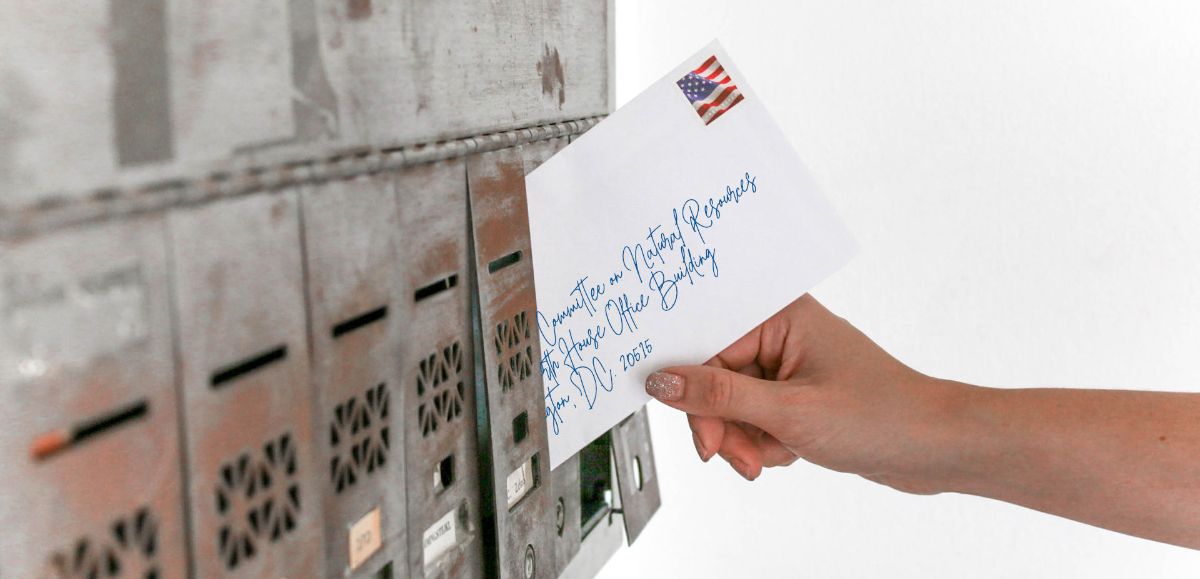 Committee on Natural Resources
House Office Building
gton, DC. 20515